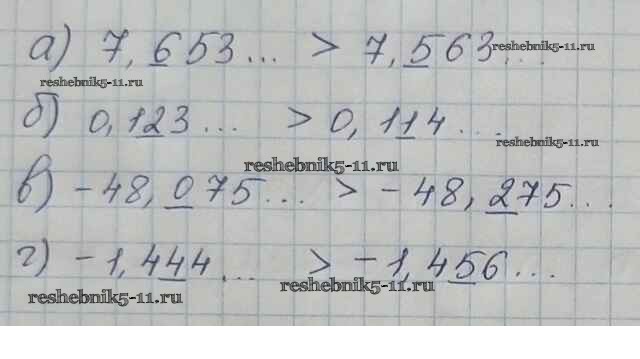 а) 7,653... > 7,563...
reshebnik5-11.ru
reshebnik5-11.ru
б) 0,123... > 0,114...
reshebnik5-11.ru
reshebnik5-11.ru
в) -48,075... > -48,275...
г) -1,444... > -1,456...
reshebnik5-11.ru
reshebnik5-11.ru